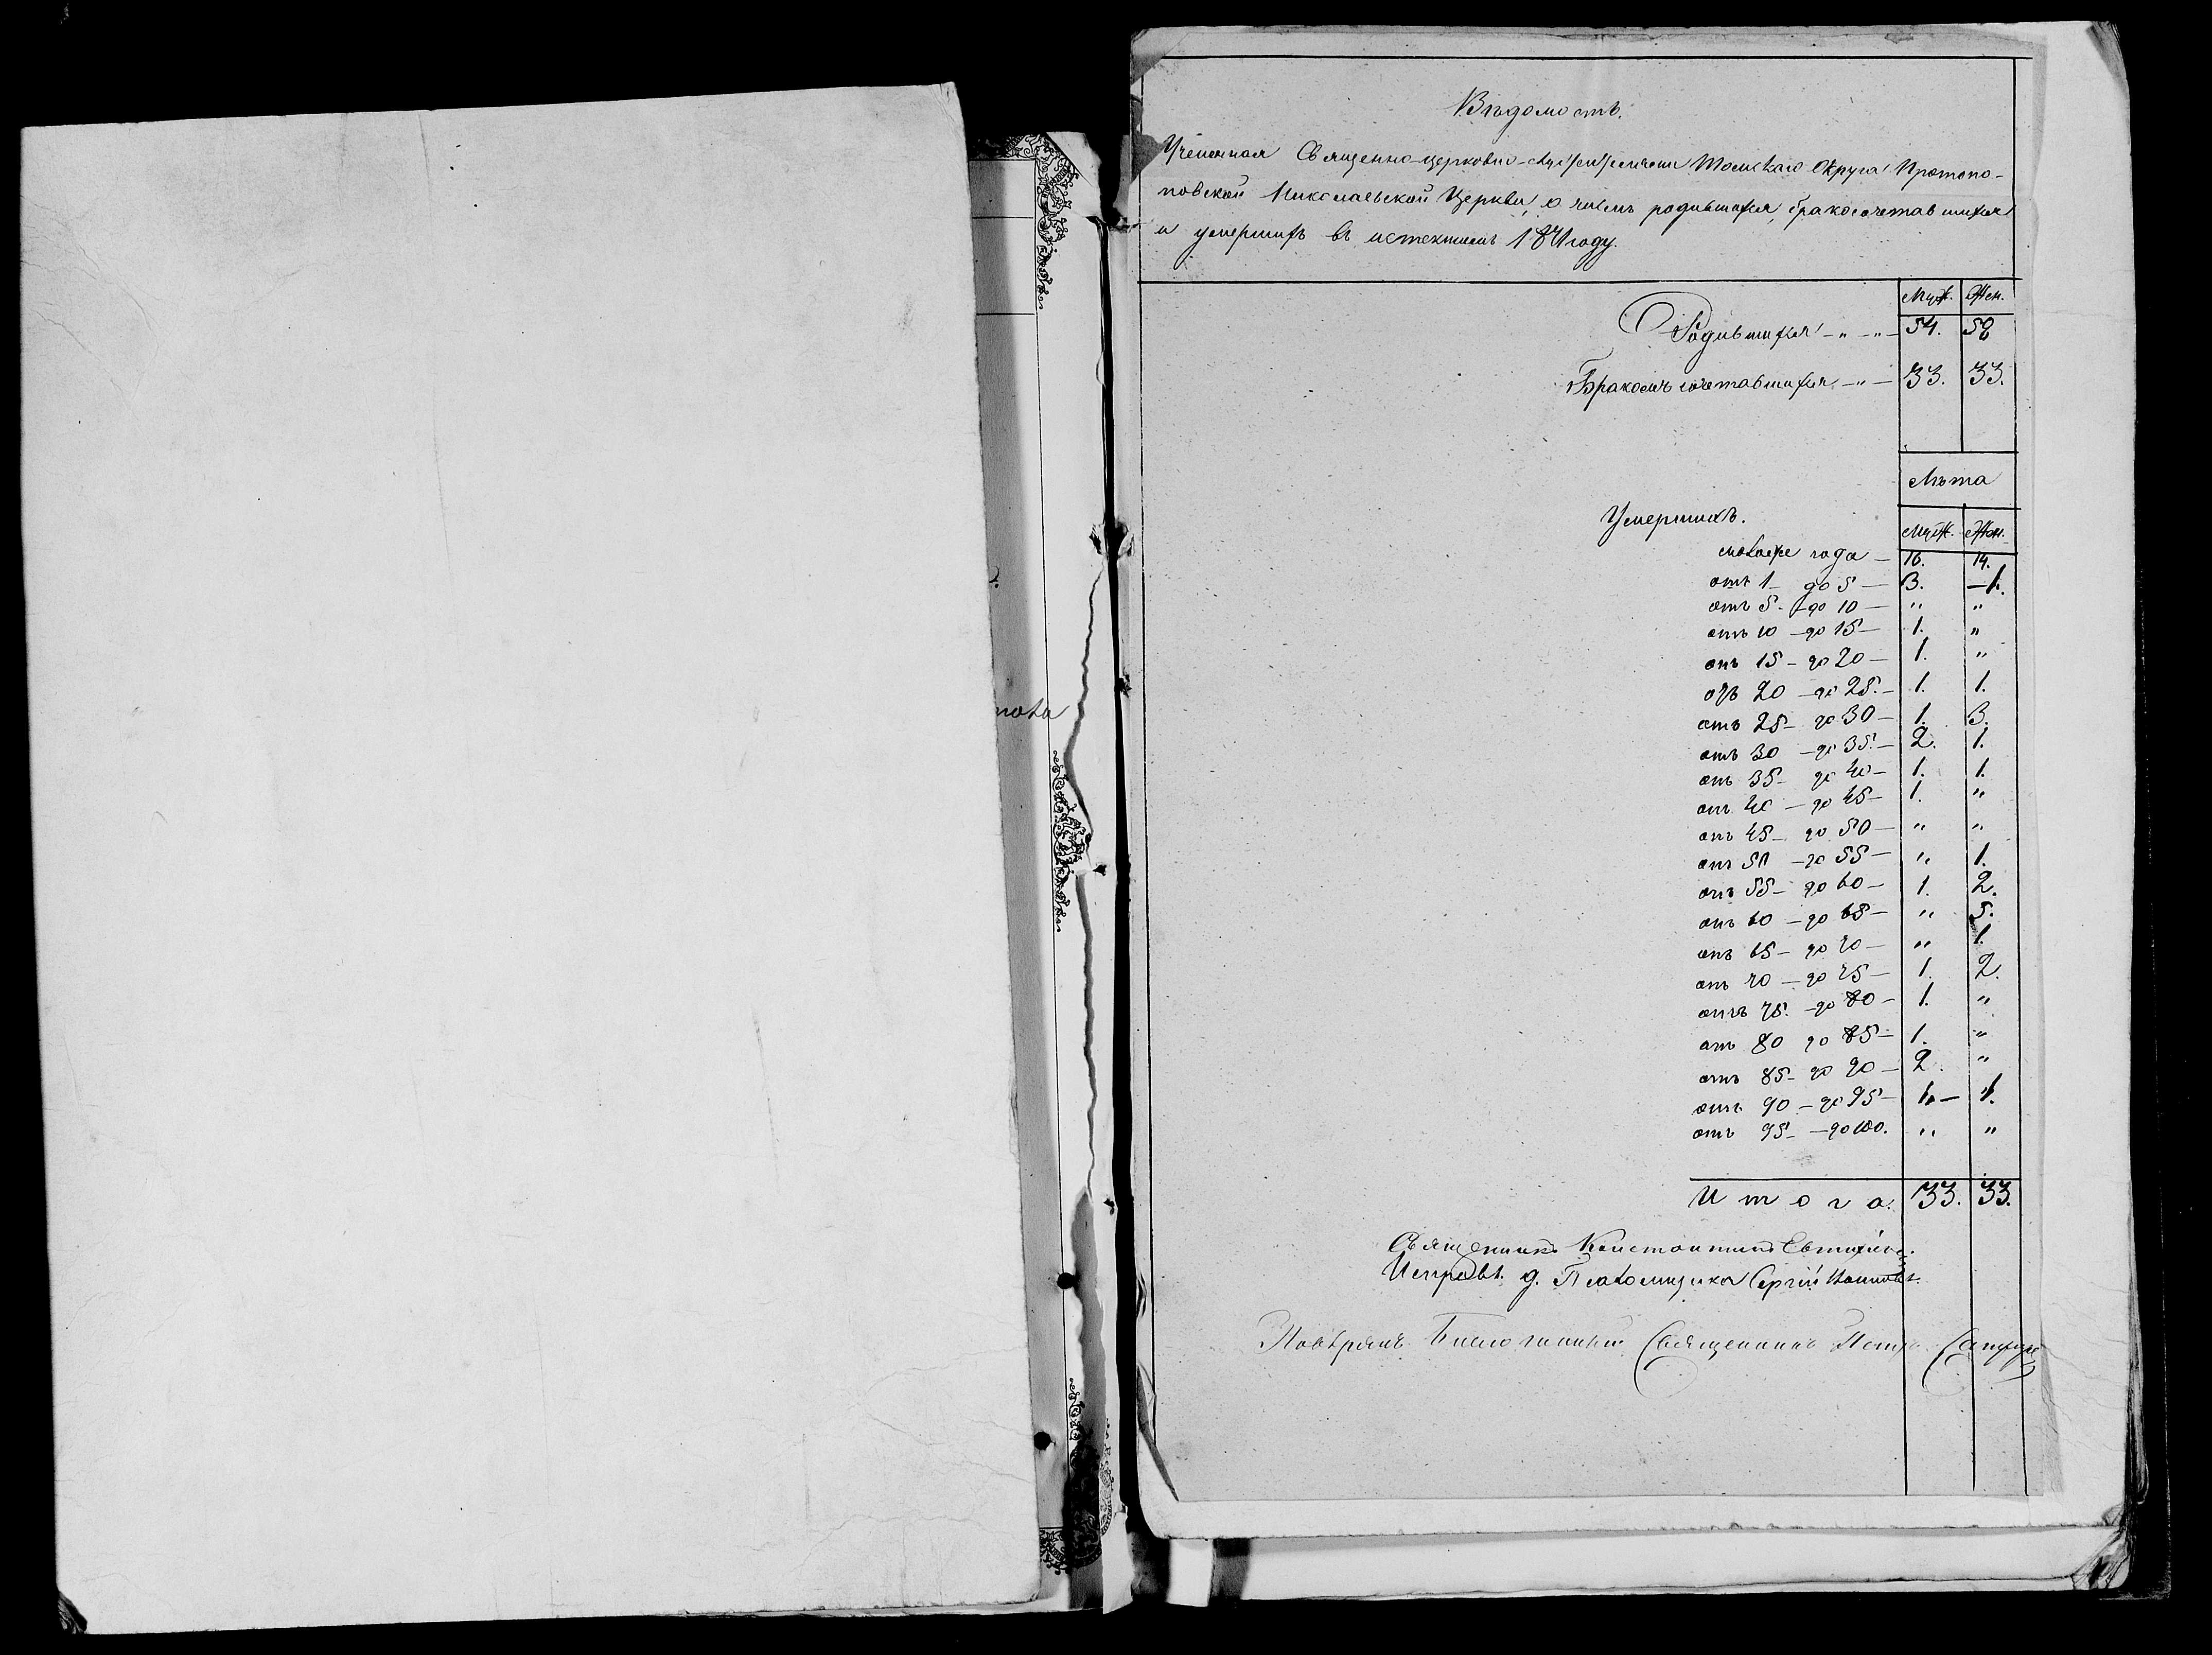 това
Вѣдомость.
Учиненная Священно-церковно-служителями Томскаго Округа Протопо-
повской Николаевской Церкви, о числѣ родившихся, бракосочетавшихся
и умершихъ въ истекшемъ 1871 году.
Муж. Жен.
Родившихся - „ - „ - 54. 58
Бракомъ сочетавшихся - „ - 33. 33.
Лѣта
Умершихъ.
Муж. Жен.
моложе года - 16. 14.
отъ 1 - до 5 - 3. - 1.
отъ 5 - до 10 - „ „
отъ 10 - до 15 - 1. „
отъ 15 - до 20 - 1. „
отъ 20 - до 25. - 1. 1.
отъ 25 - до 30 - 1. 3.
отъ 30 - до 35. - 2. 1.
отъ 35 - до 40 - 1. 1.
отъ 40 - до 45 - 1. „
отъ 45 - до 50 - „ „
отъ 50 - до 55 - „ 1.
отъ 55 - до 60 - 1. 2.
отъ 60 - до 65 - „ 5.
отъ 65 - до 70 - „ 1.
отъ 70 - до 75 - 1. 2.
отъ 75. - до 80 - 1. „
отъ 80 до 85 - 1. „
отъ 85 - до 90 - 2. „
отъ 90 - до 95 - 1. - 1.
отъ 95 - до 100. „ „
Итого. 33. 33.
Священникъ Константинъ
Исправл. д. Псаломщика Сергій
Повѣрялъ Благочинный Священникъ Петръ